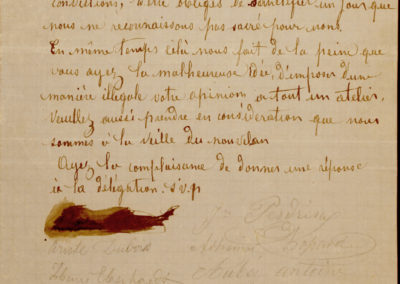 convictions, d'être obligés de sanctifier un jour que
nous ne reconnaissons pas sacré pour nous.
En même temps celà nous fait de la peine que
vous ayez la malheureuse idée, d'imposer d'une
manière illégale votre opinion, a tout un atelier.
Veuillez aussi prendre en considération que nous
sommes à la veille du nouvelan
Ayez la complaisance de donner une réponse
à la délégation. s.v.p
Perdrix
Chopard
Dubois
Henri
Antoine